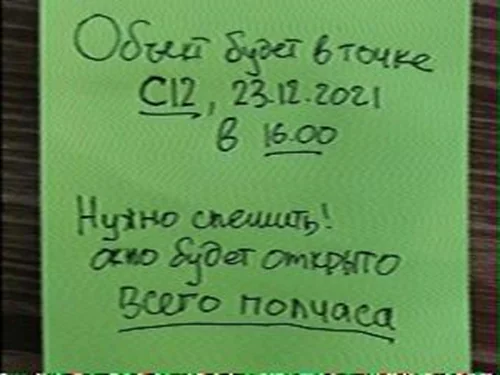 Объект будет в точке
C12, 23.12.2021
в 16.00
Нужно спешить!
окно будет открыто
всего полчаса